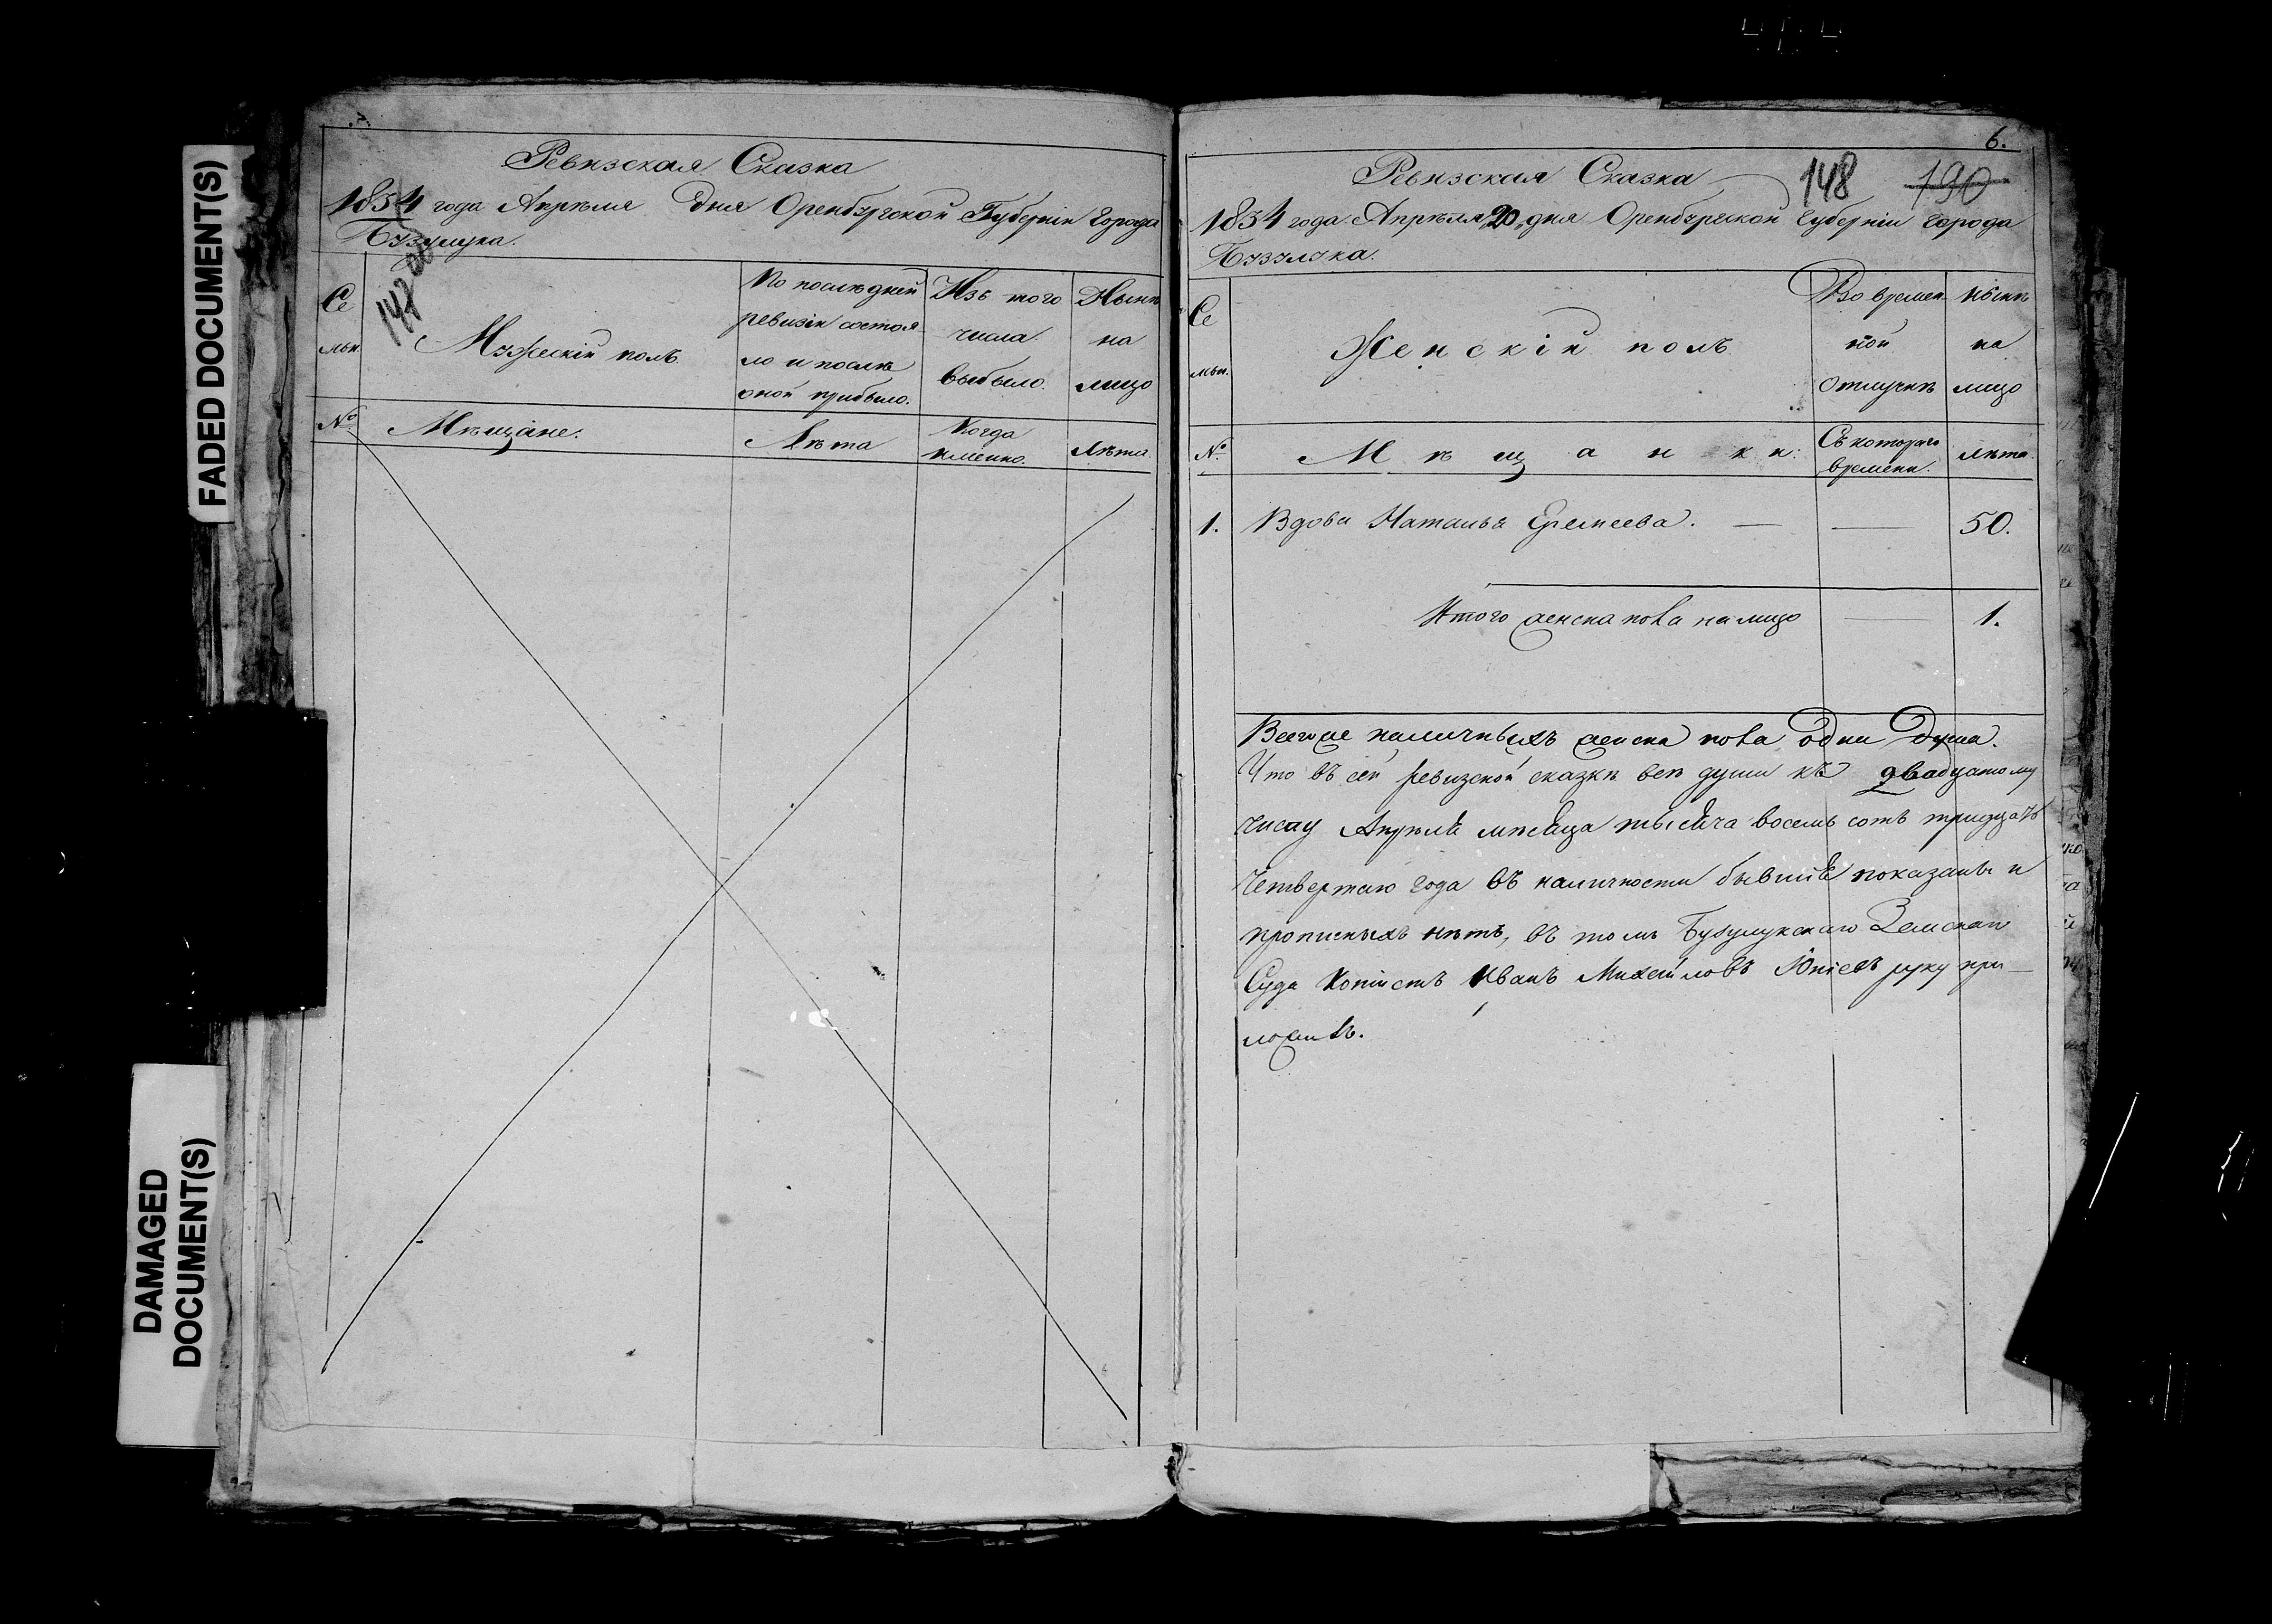 FADED DOCUMENT(S)
DAMAGED
DOCUMENT(S)
Ревизская Сказка
1834 года Апрѣля дня Оренбургской Губерніи Города
Бузулука.
148
Се
мьи.
Мужескій полъ
По послѣдней
ревизіи состоя
ло и послѣ
оной прибыло.
Изъ того
числа
выбыло.
Нынѣ
на
лицо
№
Мѣщане.
Лѣта
Когда
именно.
Лѣта.
6.
Ревизская Сказка
148 190
1834 года Апрѣля 20 дня Оренбургской Губерніи города
Бузулука.
Се
мьи.
Женскій полъ
Во времен
ной
отлучкѣ
нынѣ
на
лицо
№
Мѣщанки:
Съ котораго
времени.
лѣта.
1. Вдова Наталья Еремеева. — — 50.
Итого женска пола на лицо — 1.
Всего же наличныхъ женска пола одна Душа.
Что въ сей ревизской сказкѣ всѣ души къ двадцатому
числу Апрѣля мѣсяца тысяча восемь сотъ тридцать
четвертаго года въ наличности бывшія показаны и
прописныхъ нѣтъ, въ томъ Бузулукскаго Земскаго
Суда Копіистъ Иванъ Михайловъ руку при—
ложилъ.